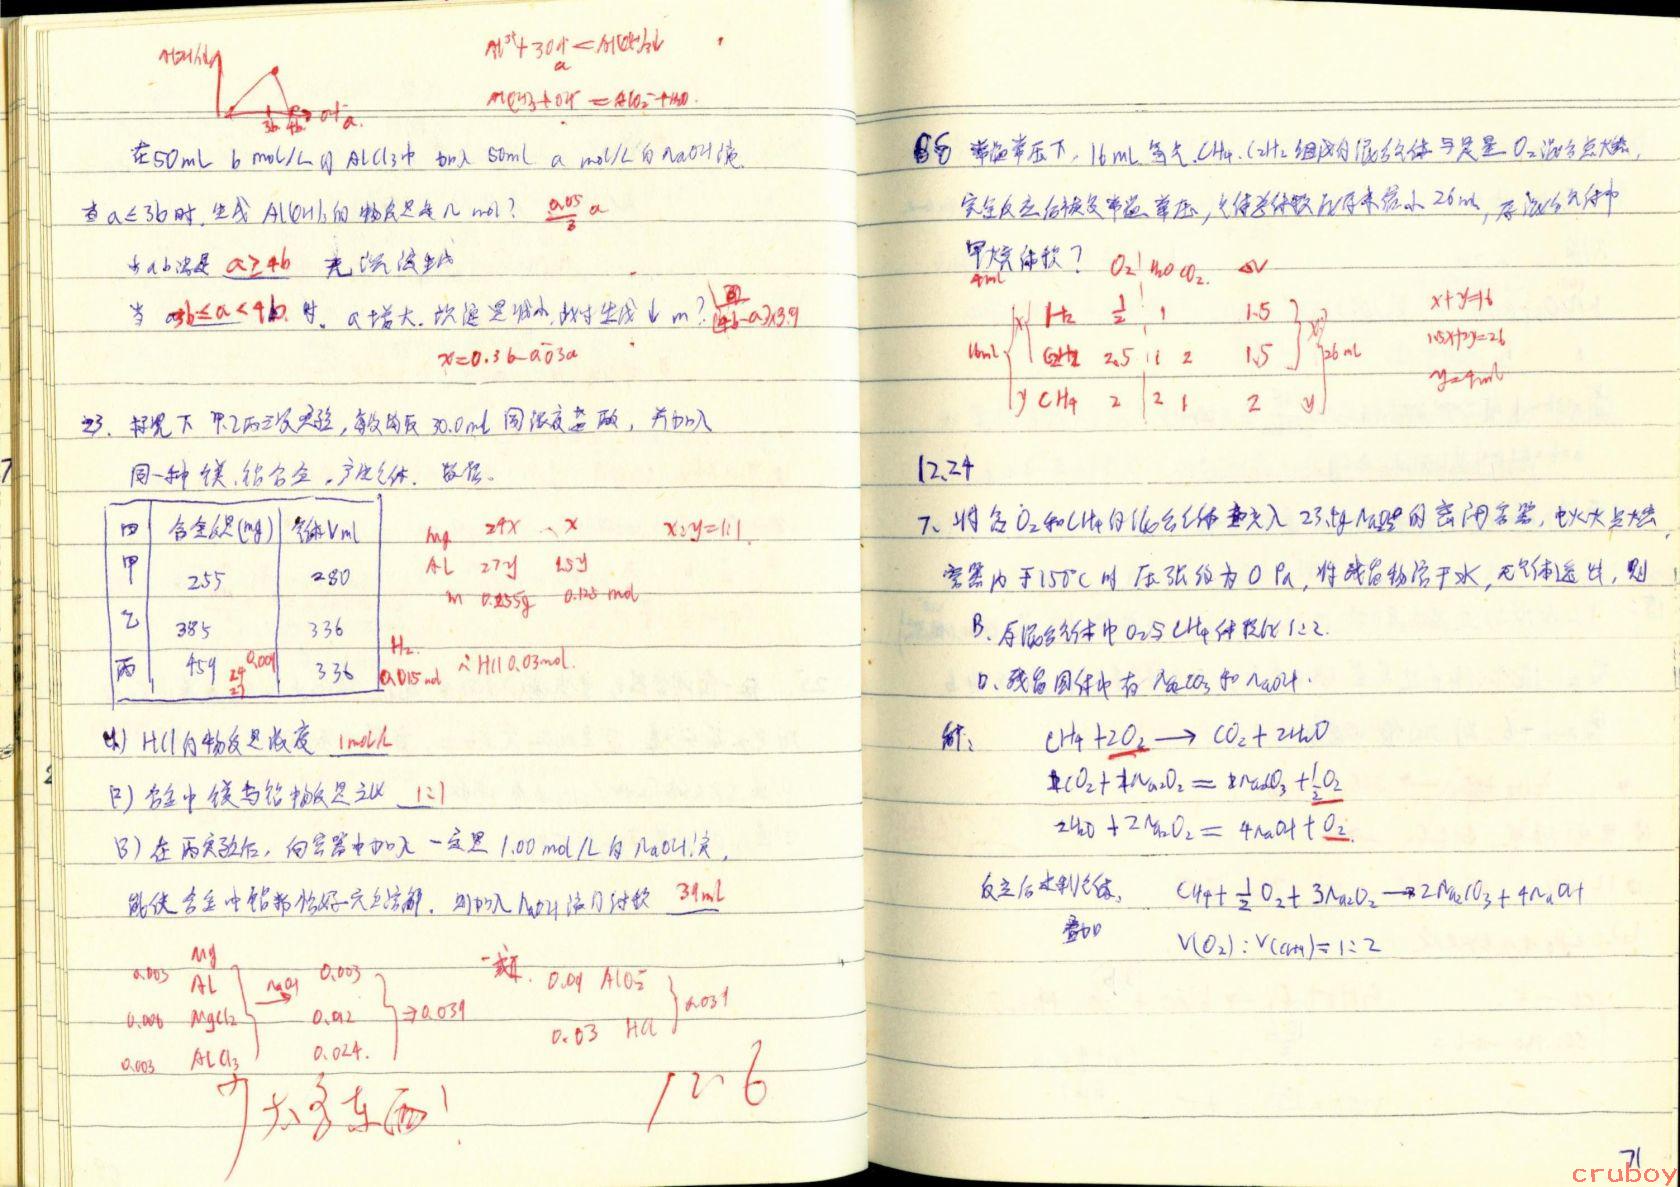 Al³⁺+3OH⁻=Al(OH)₃↓
a
Al(OH)₃+OH⁻=AlO₂⁻+H₂O.
3b 4b OH⁻ a.
在50mL b mol/L的AlCl₃中加入50ml a mol/L的NaOH液
当a≤3b时,生成Al(OH)₃的物质是几mol? 0.05/3 a
当ab满足 a≥4b 无沉淀生成
当 3b≤a<4b 时. a增大.沉淀是减小,此时生成↓m? (4b-a)×3.9
23. 标况下 甲乙丙三次实验,每次均取30.0ml同浓度盐酸,并加入
同一种镁、铝合金,产生气体. 数据。
四 合金质量(mg) 气体Vml
甲 255 280
乙 385 336
丙 459 336
Mg 24x x x:y=1:1
AL 27y 1.5y
m 0.255g 0.125mol
0.009
24
27
H₂.
0.015mol ∴HCl 0.03mol.
(1) HCl的物质量浓度 1mol/L
(2) 合金中镁与铝物质量之比 1:1
(3) 在丙实验后,向容器中加入一定量1.00mol/L的NaOH液,
能使合金中铝都恰好完全溶解,则加入NaOH液的体积 39ml
Mg
0.003 AL NaOH 0.003
0.006 MgCl₂ 0.012 ⇒0.039
0.003 ALCl₃ 0.024.
0.09 AlO₂⁻
0.03 HCl
0.039
太多东西!
12.6
常温常压下,16mL氢气.CH₄.C₂H₂组成的混合气体与足量O₂混合点燃,
完全反应后恢复常温常压,气体总体积比原来缩小26ml,原混合气体中
甲烷体积?
4ml O₂ H₂O CO₂. ΔV
x H₂ ½ 1 1.5
16ml C₂H₂ 2.5 1 2 1.5 26ml
y CH₄ 2 2 1 2 y
x+y=16
1.5x+2y=26
y=4ml
12.24
7、将含O₂和CH₄的混合气体充入23.4g Na₂O₂的密闭容器,电火火点燃
容器内于150℃时压强约为0 Pa,将残留物溶于水,无气体逸出,则
B、原混合气体中O₂与CH₄体积比1:2.
D、残留固体中有Na₂CO₃和NaOH.
解: CH₄+2O₂→CO₂+2H₂O
1CO₂+1Na₂O₂=1Na₂CO₃+½O₂
2H₂O+2Na₂O₂=4NaOH+O₂
反应后未剩气体, CH₄+½O₂+3Na₂O₂→2Na₂CO₃+4NaOH
叠加 V(O₂):V(CH₄)=1:2
71
cruboy